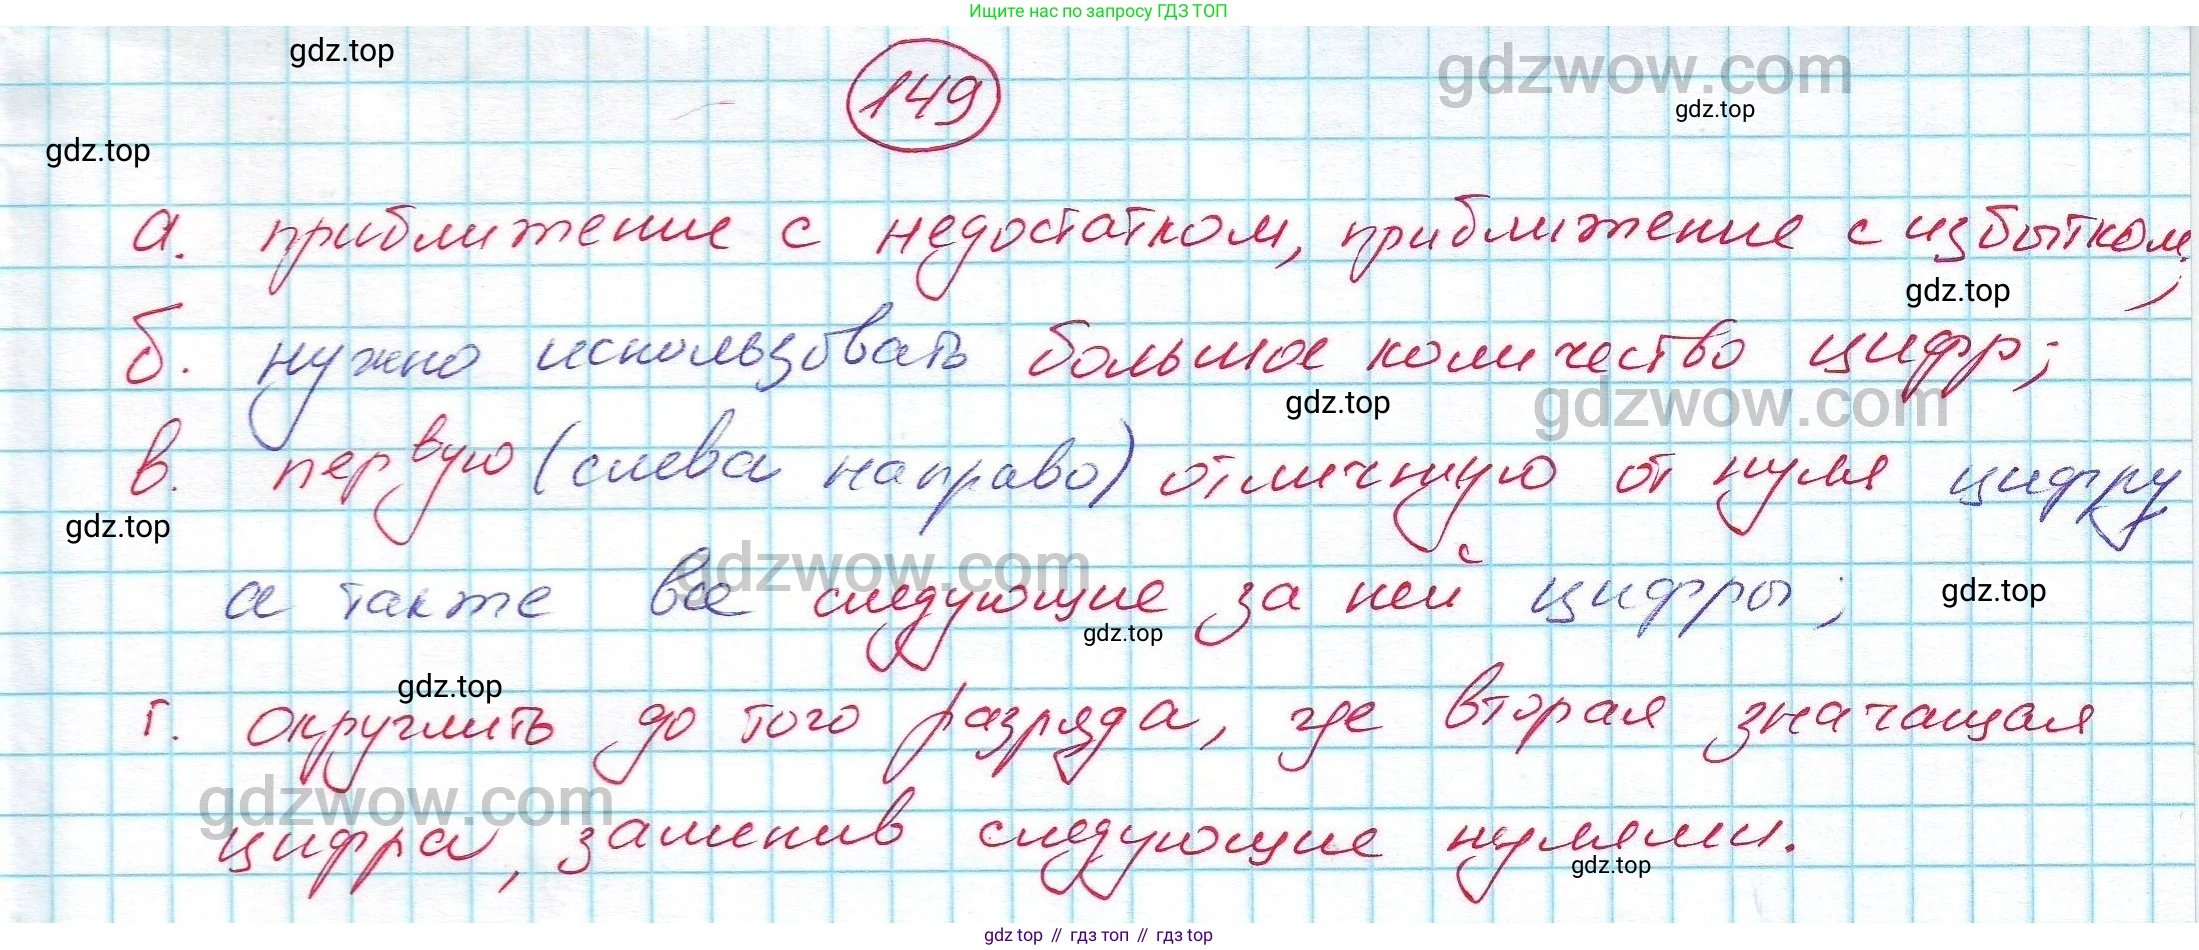 Ищите нас по запросу ГДЗ ТОП
gdz.top
149
gdzwow.com
gdz.top
gdz.top
а. приближение с недостатком, приближение с избытком;
gdz.top
б. нужно использовать большое количество цифр;
gdz.top
gdzwow.com
в. первую (слева направо) отличную от нуля цифру
gdz.top
gdzwow.com
а также все следующие за ней цифры;
gdz.top
gdz.top
gdz.top
г. округлить до того разряда, где вторая значащая
gdzwow.com
цифра, заменив следующие нулями.
gdz.top
gdz top // гдз топ // гдз top